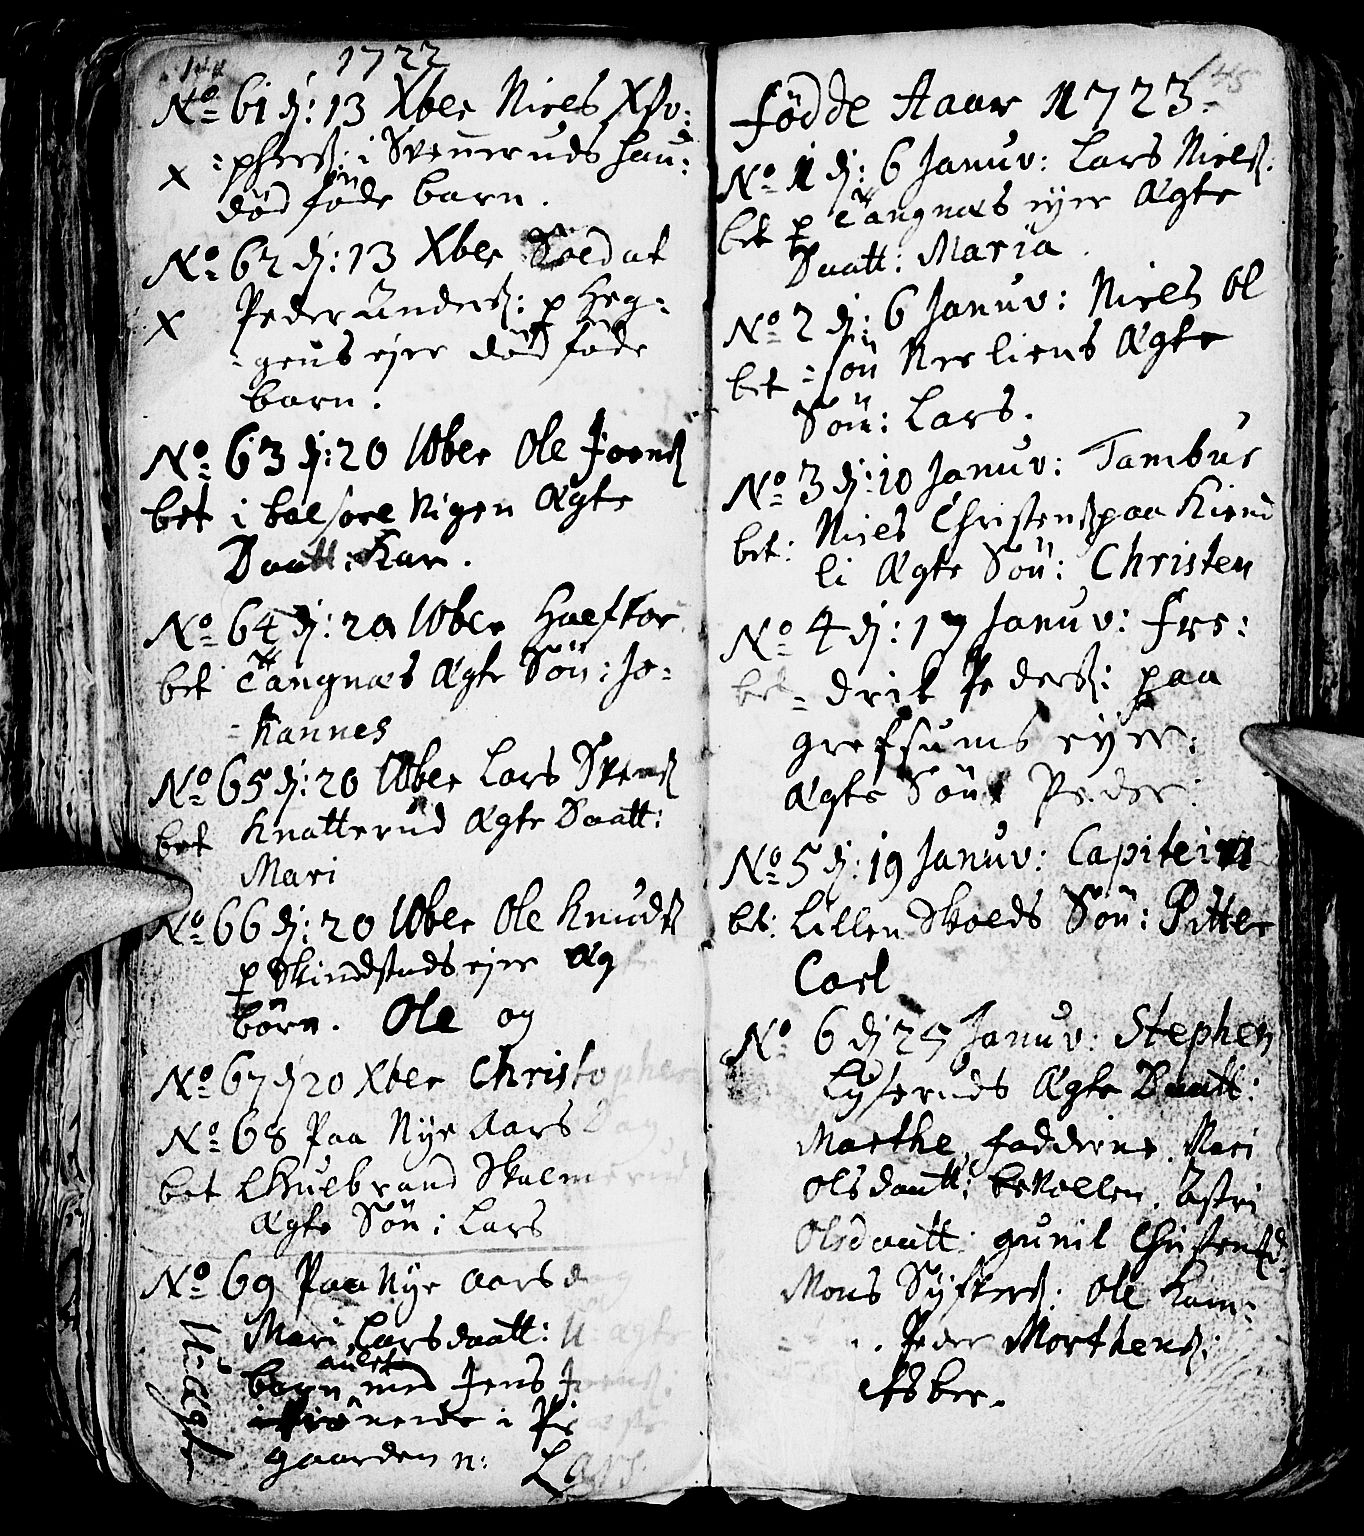 1722
No 61 dj: 13 Xber Niels Xsto:
x :phers: i Svenneruds hau:
død føde barn.
No 62 dj: 13 Xber Soldat
x Peder Anders: p Heg:
:gens ejer død føde
barn.
No 63 dj: 20 Xber Ole Joens
bet i balsore Nigen Ægte
Daatt: Kari.
No 64 dj: 20 Xber Halftor
bet Tangnæs Ægte Søn: Jo-
-hannes
No 65 dj: 20 Xber Lars Svens
bet Knatterud Ægte Daatt:
Mari
No 66 dj: 20 Xber Ole Knuds
p Skindstads ejer Æg
børn. Ole og
No 67 dj 20 Xber Christopher
No 68 Paa Nye Aars Dag
bet Hulbrand Skulmerud
Ægte Søn: Lars
No 69 Paa Nye Aars dag
Mari Larsdaatt: U: ægte
barn aulet med Jens
i
gaarden n: Lars.
U: ægt
145
fødde Aaar 1723
No 1 dj: 6 Januv: Lars Niels:
bet p Tangnæs ejer Ægte
Daatt: Maria.
No 2 dj: 6 Januv: Niels Ol
bet :søn Nerliens Ægte
Søn: Lars.
No 3 dj: 10 Januv: Tambur
bet: Niels Christens paa Kiend
li Ægte Søn: Christen
No 4 dj: 17 Januv: Fre:
bet - drik Peders: paa
grefsums ejer:
Ægte Søn: Peder:
No 5 dj: 19 Januv: Capitein
bet: Lillen Skolds Søn: Pitter
Carl
No 6 dj 25 Januv: Stephen
Lyseruds Ægte Daatt:
Marthe, fadderne. Mari
Olsdaatt: bekollen. Astri
Olsdaatt: gunil Christensd:
Mons Syfters: Ole Kam-
Peder Morthens:
Asber.